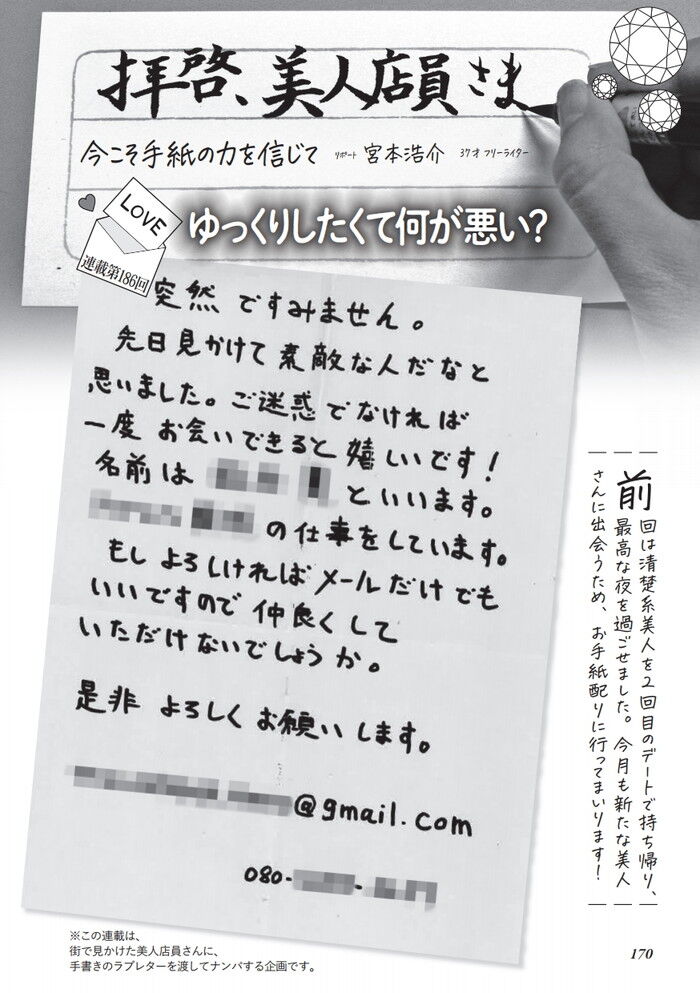 拝啓、美人店員さま
今こそ手紙の力を信じて リポート 宮本浩介 37才 フリーライター
LOVE
連載第186回
ゆっくりしたくて何が悪い?
突然ですみません。
先日見かけて素敵な人だなと
思いました。ご迷惑でなければ
一度お会いできると嬉しいです!
名前は といいます。
の仕事をしています。
もしよろしければメールだけでも
いいですので仲良くして
いただけないでしょうか。
是非よろしくお願いします。
@gmail.com
080- -
前回は清楚系美人を2回目のデートで持ち帰り、
最高な夜を過ごせました。今月も新たな美人
さんに出会うため、お手紙配りに行ってまいります!
※この連載は、
街で見かけた美人店員さんに、
手書きのラブレターを渡してナンパする企画です。
170